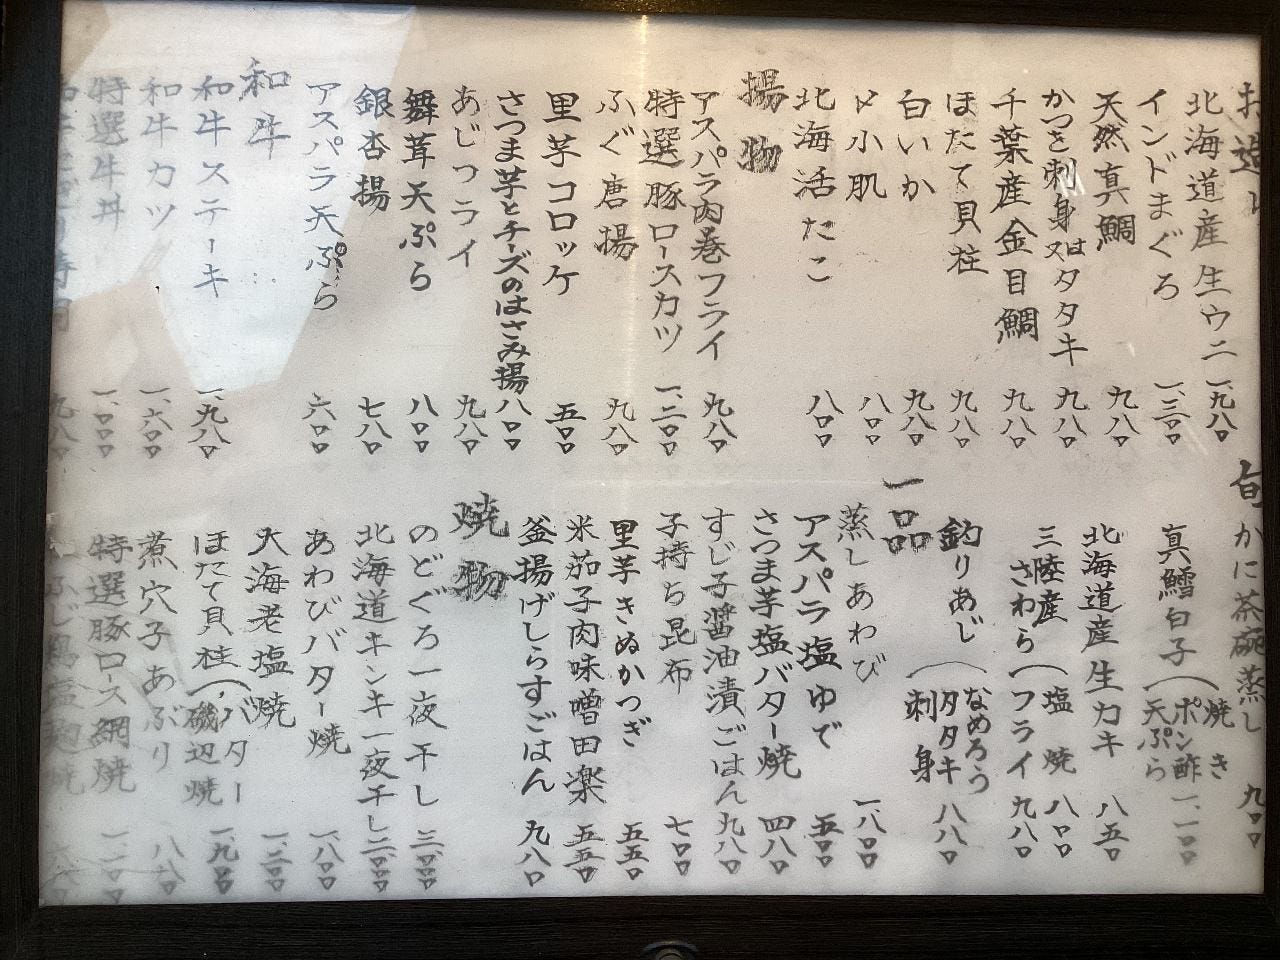 お造り
北海道産生ウニ 一、九八〇
インドまぐろ 一、三〇〇
天然真鯛 九八〇
かつを刺身又はタタキ 九八〇
千葉産金目鯛 九八〇
ほたて貝柱 九八〇
白いか 九八〇
〆小肌 八〇〇
北海活たこ 八〇〇
揚物
アスパラ肉巻フライ 九八〇
特選豚ロースカツ 一、二〇〇
ふぐ唐揚 九八〇
里芋コロッケ 五〇〇
さつま芋とチーズのはさみ揚 八〇〇
あじフライ 九八〇
舞茸天ぷら 八〇〇
銀杏揚 七八〇
アスパラ天ぷら 六〇〇
和牛
和牛ステーキ 一、九八〇
和牛カツ 一、六〇〇
特選牛丼 一、〇〇〇
九八〇
旬
かに茶碗蒸し 九〇〇
真鱈白子(焼き ポン酢 天ぷら 一、一〇〇
北海道産生カキ 八五〇
三陸産さわら(塩焼 八〇〇 フライ 九八〇
釣りあじ(なめろう タタキ 刺身 八八〇
一品
蒸しあわび 一、八〇〇
アスパラ塩ゆで 五〇〇
さつま芋塩バター焼 四八〇
すじ子醤油漬ごはん 九八〇
子持ち昆布 七〇〇
里芋きぬかつぎ 五五〇
米茄子肉味噌田楽 五五〇
釜揚げしらすごはん 九八〇
焼物
のどぐろ一夜干し 三、〇〇〇
北海道キンキ一夜干し 二、〇〇〇
あわびバター焼 一、八〇〇
大海老塩焼 一、三〇〇
ほたて貝柱(バター 磯辺焼 一、九〇〇
煮穴子あぶり 八八〇
特選豚ロース網焼 一、二〇〇
ふじ鶏塩麹焼